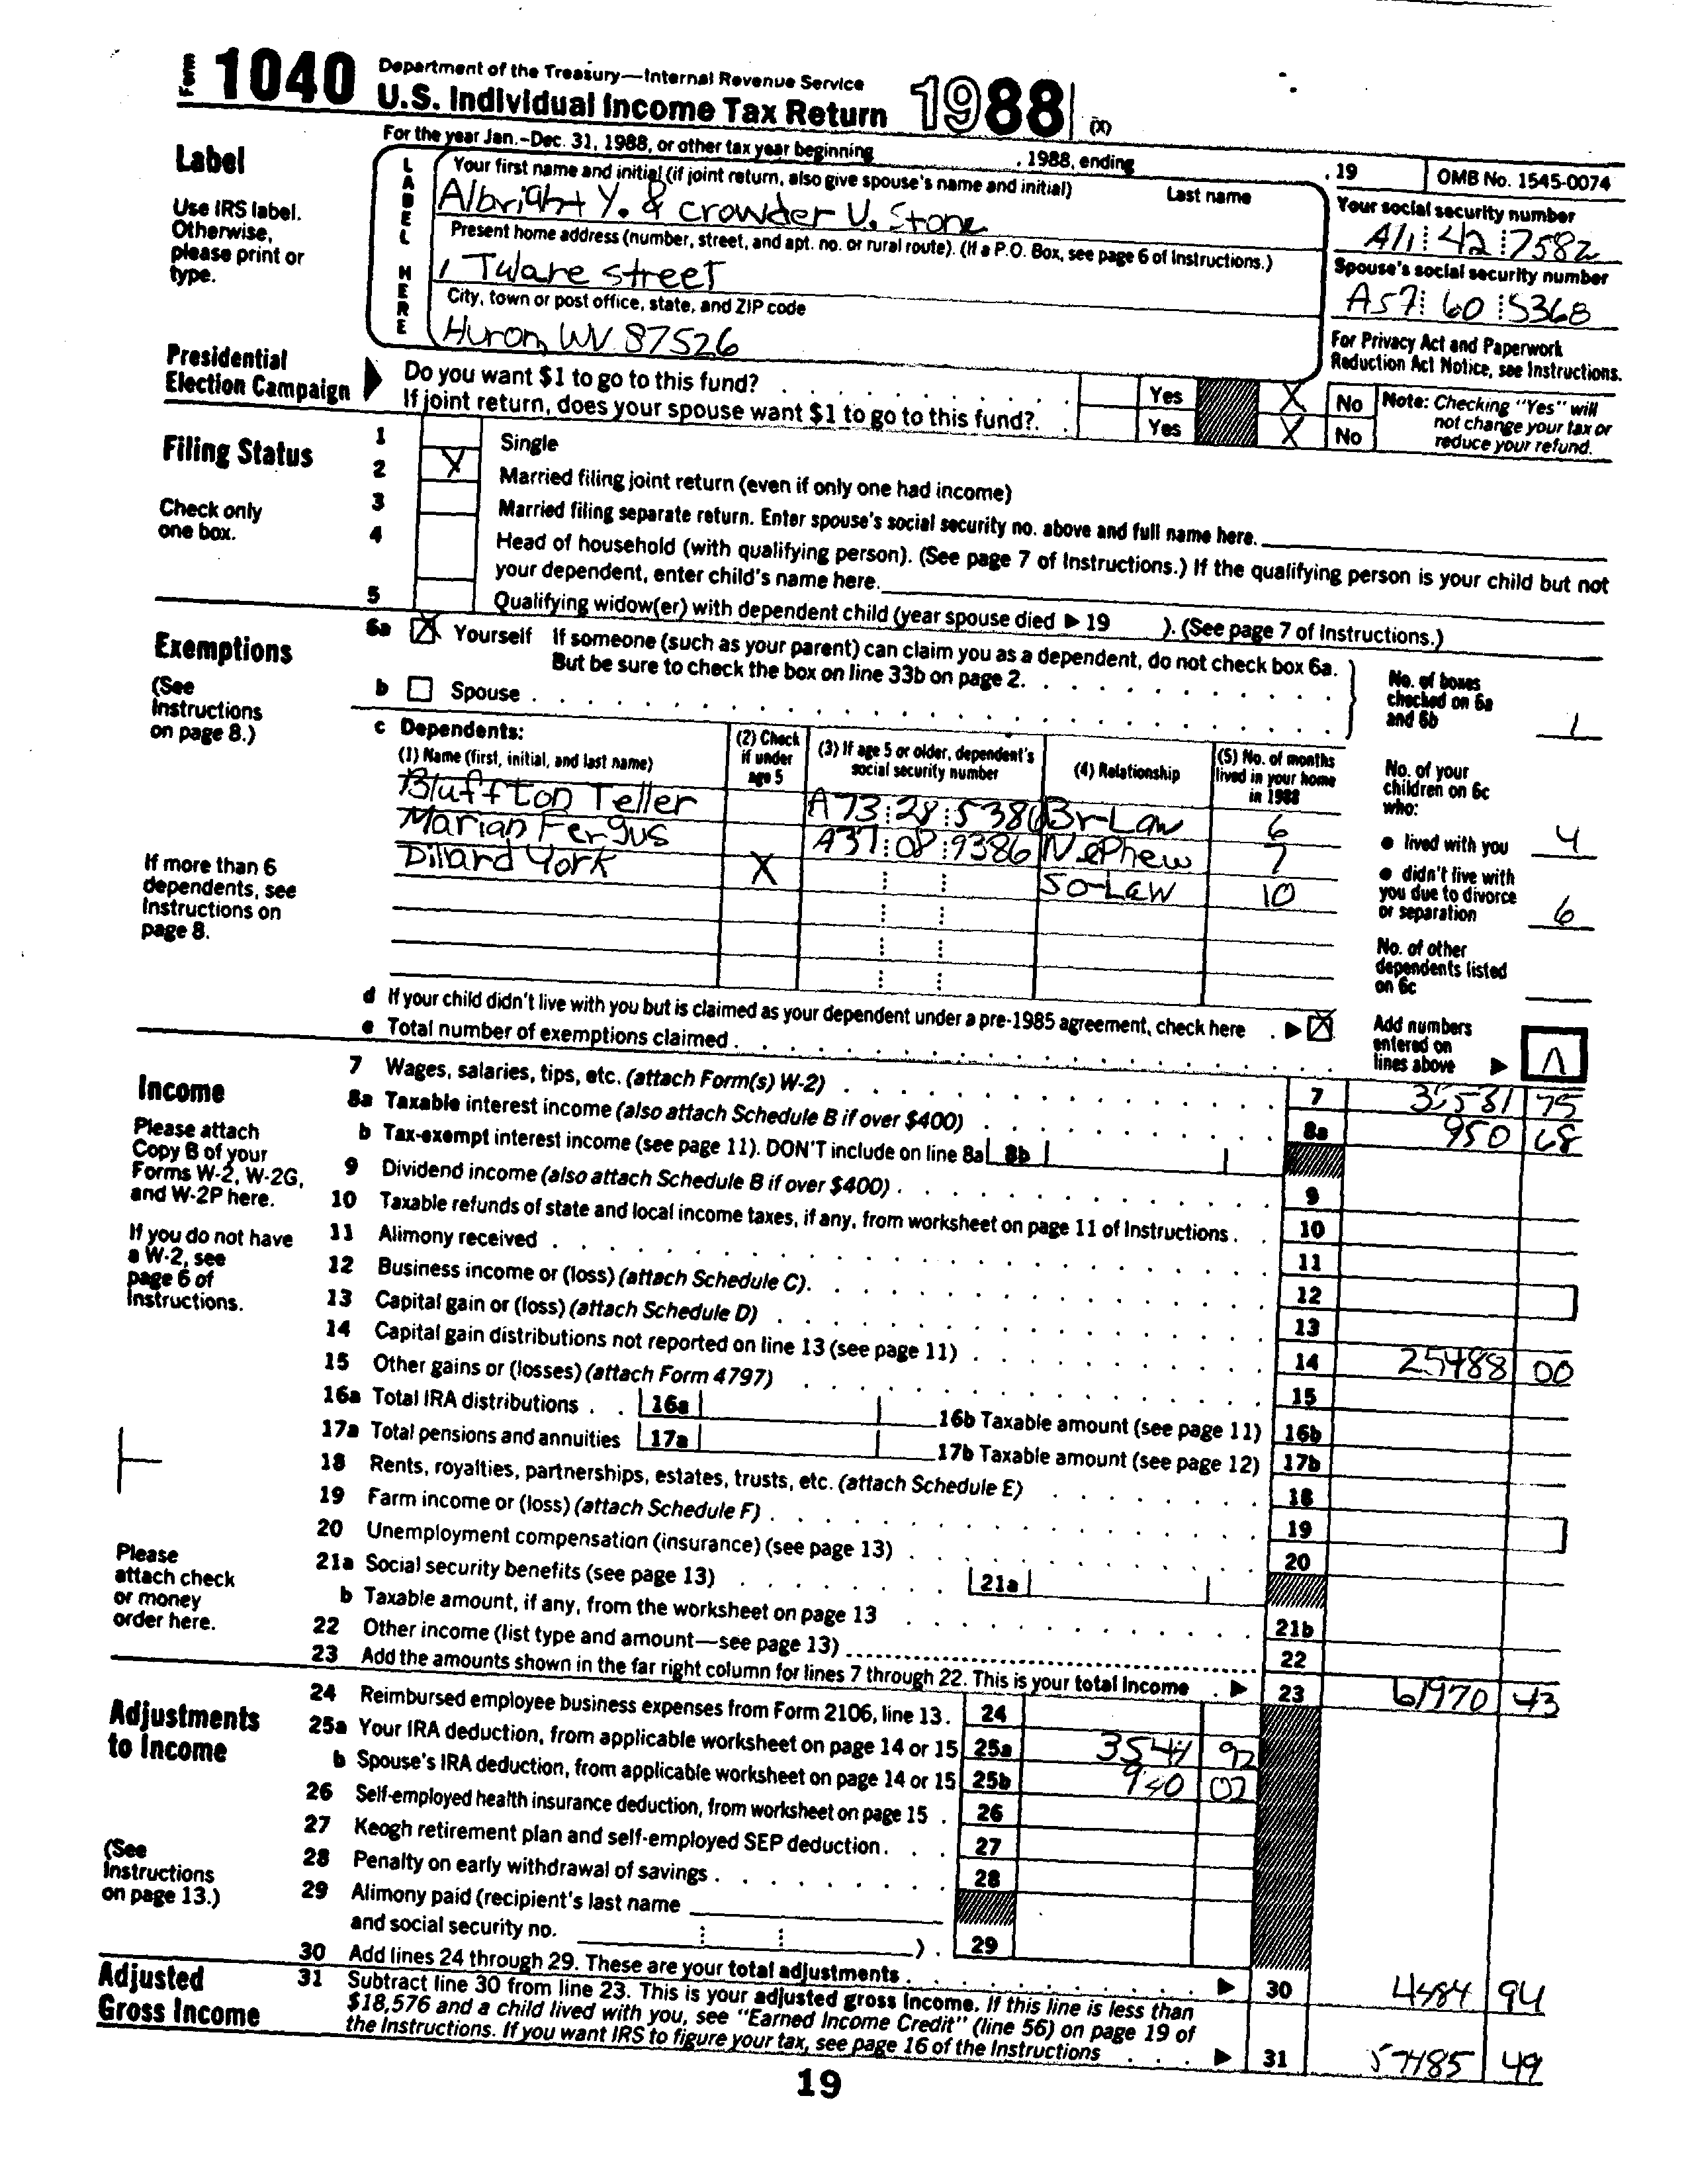 Form 1040 Department of the Treasury—Internal Revenue Service
U.S. Individual Income Tax Return 1988 (X)
For the year Jan.–Dec. 31, 1988, or other tax year beginning , 1988, ending , 19 OMB No. 1545-0074
Label
Use IRS label.
Otherwise,
please print or
type.
LABEL HERE
Your first name and initial (if joint return, also give spouse's name and initial) Last name
Albright Y. & Crowder V. Stone
Your social security number
A11 42 7582
Present home address (number, street, and apt. no. or rural route). (If a P.O. Box, see page 6 of Instructions.)
1 Tulare street
Spouse's social security number
A57 60 5368
City, town or post office, state, and ZIP code
Huron, WV 87526
For Privacy Act and Paperwork
Reduction Act Notice, see Instructions.
Presidential
Election Campaign
Do you want $1 to go to this fund? Yes X No
If joint return, does your spouse want $1 to go to this fund? Yes X No
Note: Checking "Yes" will
not change your tax or
reduce your refund.
Filing Status
Check only
one box.
1 Single
2 X Married filing joint return (even if only one had income)
3 Married filing separate return. Enter spouse's social security no. above and full name here.
4 Head of household (with qualifying person). (See page 7 of Instructions.) If the qualifying person is your child but not
your dependent, enter child's name here.
5 Qualifying widow(er) with dependent child (year spouse died ▶ 19 ). (See page 7 of Instructions.)
Exemptions
(See
Instructions
on page 8.)
6a X Yourself If someone (such as your parent) can claim you as a dependent, do not check box 6a.
But be sure to check the box on line 33b on page 2.
b Spouse
No. of boxes
checked on 6a
and 6b 1
c Dependents:
(1) Name (first, initial, and last name)
(2) Check
if under
age 5
(3) If age 5 or older, dependent's
social security number
(4) Relationship
(5) No. of months
lived in your home
in 1988
Bluffton Teller A73 28 5386 Br-Law 6
Marian Fergus A37 08 9386 Nephew 7
Dillard York X So-Law 10
If more than 6
dependents, see
Instructions on
page 8.
No. of your
children on 6c
who:
● lived with you 4
● didn't live with
you due to divorce
or separation 6
No. of other
dependents listed
on 6c
d If your child didn't live with you but is claimed as your dependent under a pre-1985 agreement, check here ▶ X
e Total number of exemptions claimed
Add numbers
entered on
lines above ▶
Income
Please attach
Copy B of your
Forms W-2, W-2G,
and W-2P here.
If you do not have
a W-2, see
page 6 of
Instructions.
Please
attach check
or money
order here.
7 Wages, salaries, tips, etc. (attach Form(s) W-2) 7 75
8a Taxable interest income (also attach Schedule B if over $400) 8a 950 68
b Tax-exempt interest income (see page 11). DON'T include on line 8a 8b
9 Dividend income (also attach Schedule B if over $400) 9
10 Taxable refunds of state and local income taxes, if any, from worksheet on page 11 of Instructions 10
11 Alimony received 11
12 Business income or (loss) (attach Schedule C) 12
13 Capital gain or (loss) (attach Schedule D) 13
14 Capital gain distributions not reported on line 13 (see page 11) 14 25488 00
15 Other gains or (losses) (attach Form 4797) 15
16a Total IRA distributions 16a 16b Taxable amount (see page 11) 16b
17a Total pensions and annuities 17a 17b Taxable amount (see page 12) 17b
18 Rents, royalties, partnerships, estates, trusts, etc. (attach Schedule E) 18
19 Farm income or (loss) (attach Schedule F) 19
20 Unemployment compensation (insurance) (see page 13) 20
21a Social security benefits (see page 13) 21a
b Taxable amount, if any, from the worksheet on page 13 21b
22 Other income (list type and amount—see page 13) 22
23 Add the amounts shown in the far right column for lines 7 through 22. This is your total income ▶ 23 61970 43
Adjustments
to Income
(See
Instructions
on page 13.)
24 Reimbursed employee business expenses from Form 2106, line 13. 24
25a Your IRA deduction, from applicable worksheet on page 14 or 15 25a 3544 92
b Spouse's IRA deduction, from applicable worksheet on page 14 or 15 25b 940 02
26 Self-employed health insurance deduction, from worksheet on page 15 26
27 Keogh retirement plan and self-employed SEP deduction 27
28 Penalty on early withdrawal of savings 28
29 Alimony paid (recipient's last name
and social security no. ). 29
30 Add lines 24 through 29. These are your total adjustments ▶ 30 4484 94
Adjusted
Gross Income
31 Subtract line 30 from line 23. This is your adjusted gross income. If this line is less than
$18,576 and a child lived with you, see "Earned Income Credit" (line 56) on page 19 of
the Instructions. If you want IRS to figure your tax, see page 16 of the Instructions ▶ 31 57485 49
19